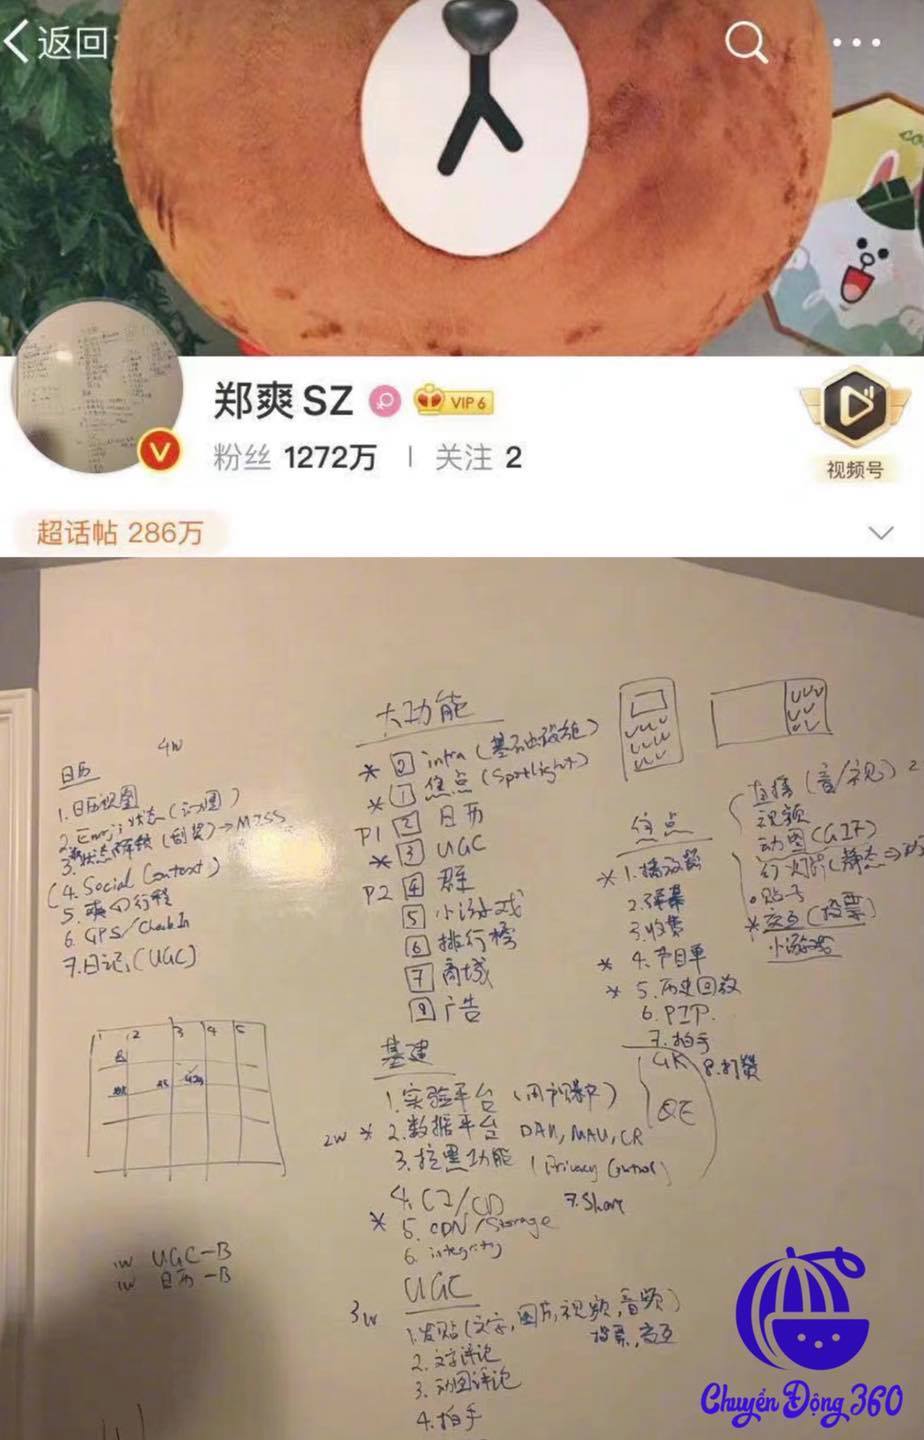 返回
郑爽SZ
VIP 6
粉丝 1272万
关注 2
视频号
超话帖 286万
4W
日历
1.日历视图
2.Emoji状态(动图)
(4.Social Context)
5.爽の行程
6.GPS/Check In
7.日记(UGC)
1 2 3 4 5
1W UGC-B
1W 日历-B
大功能
* 0 infra(基础设施)
* 1 焦点(Spotlight)
P1 2 日历
* 3 UGC
P2 4 群
5 小游戏
6 排行榜
7 商城
广告
基建
1.实验平台
2W * 2.数据平台 DAU, MAU, CR
3.拉黑功能 (Privacy Control)
4.CI/CD
7.Share
* 5.CDN/Storage
6.integrity
UGC
3W
1.发贴(文字,图片,视频,音频)
投票,交互
2.文字评论
3.动图评论
4.拍手
焦点
* 1.播放器
2.弹幕
3.收集
* 4.节目单
* 5.历史回放
6.PIP.
7.拍手
8.打赏
GK
QE
直播(音/视)
视频
动图(GIF)
幻灯片(静态
贴子
* 交互(投票)
小游戏
Chuyển Động 360